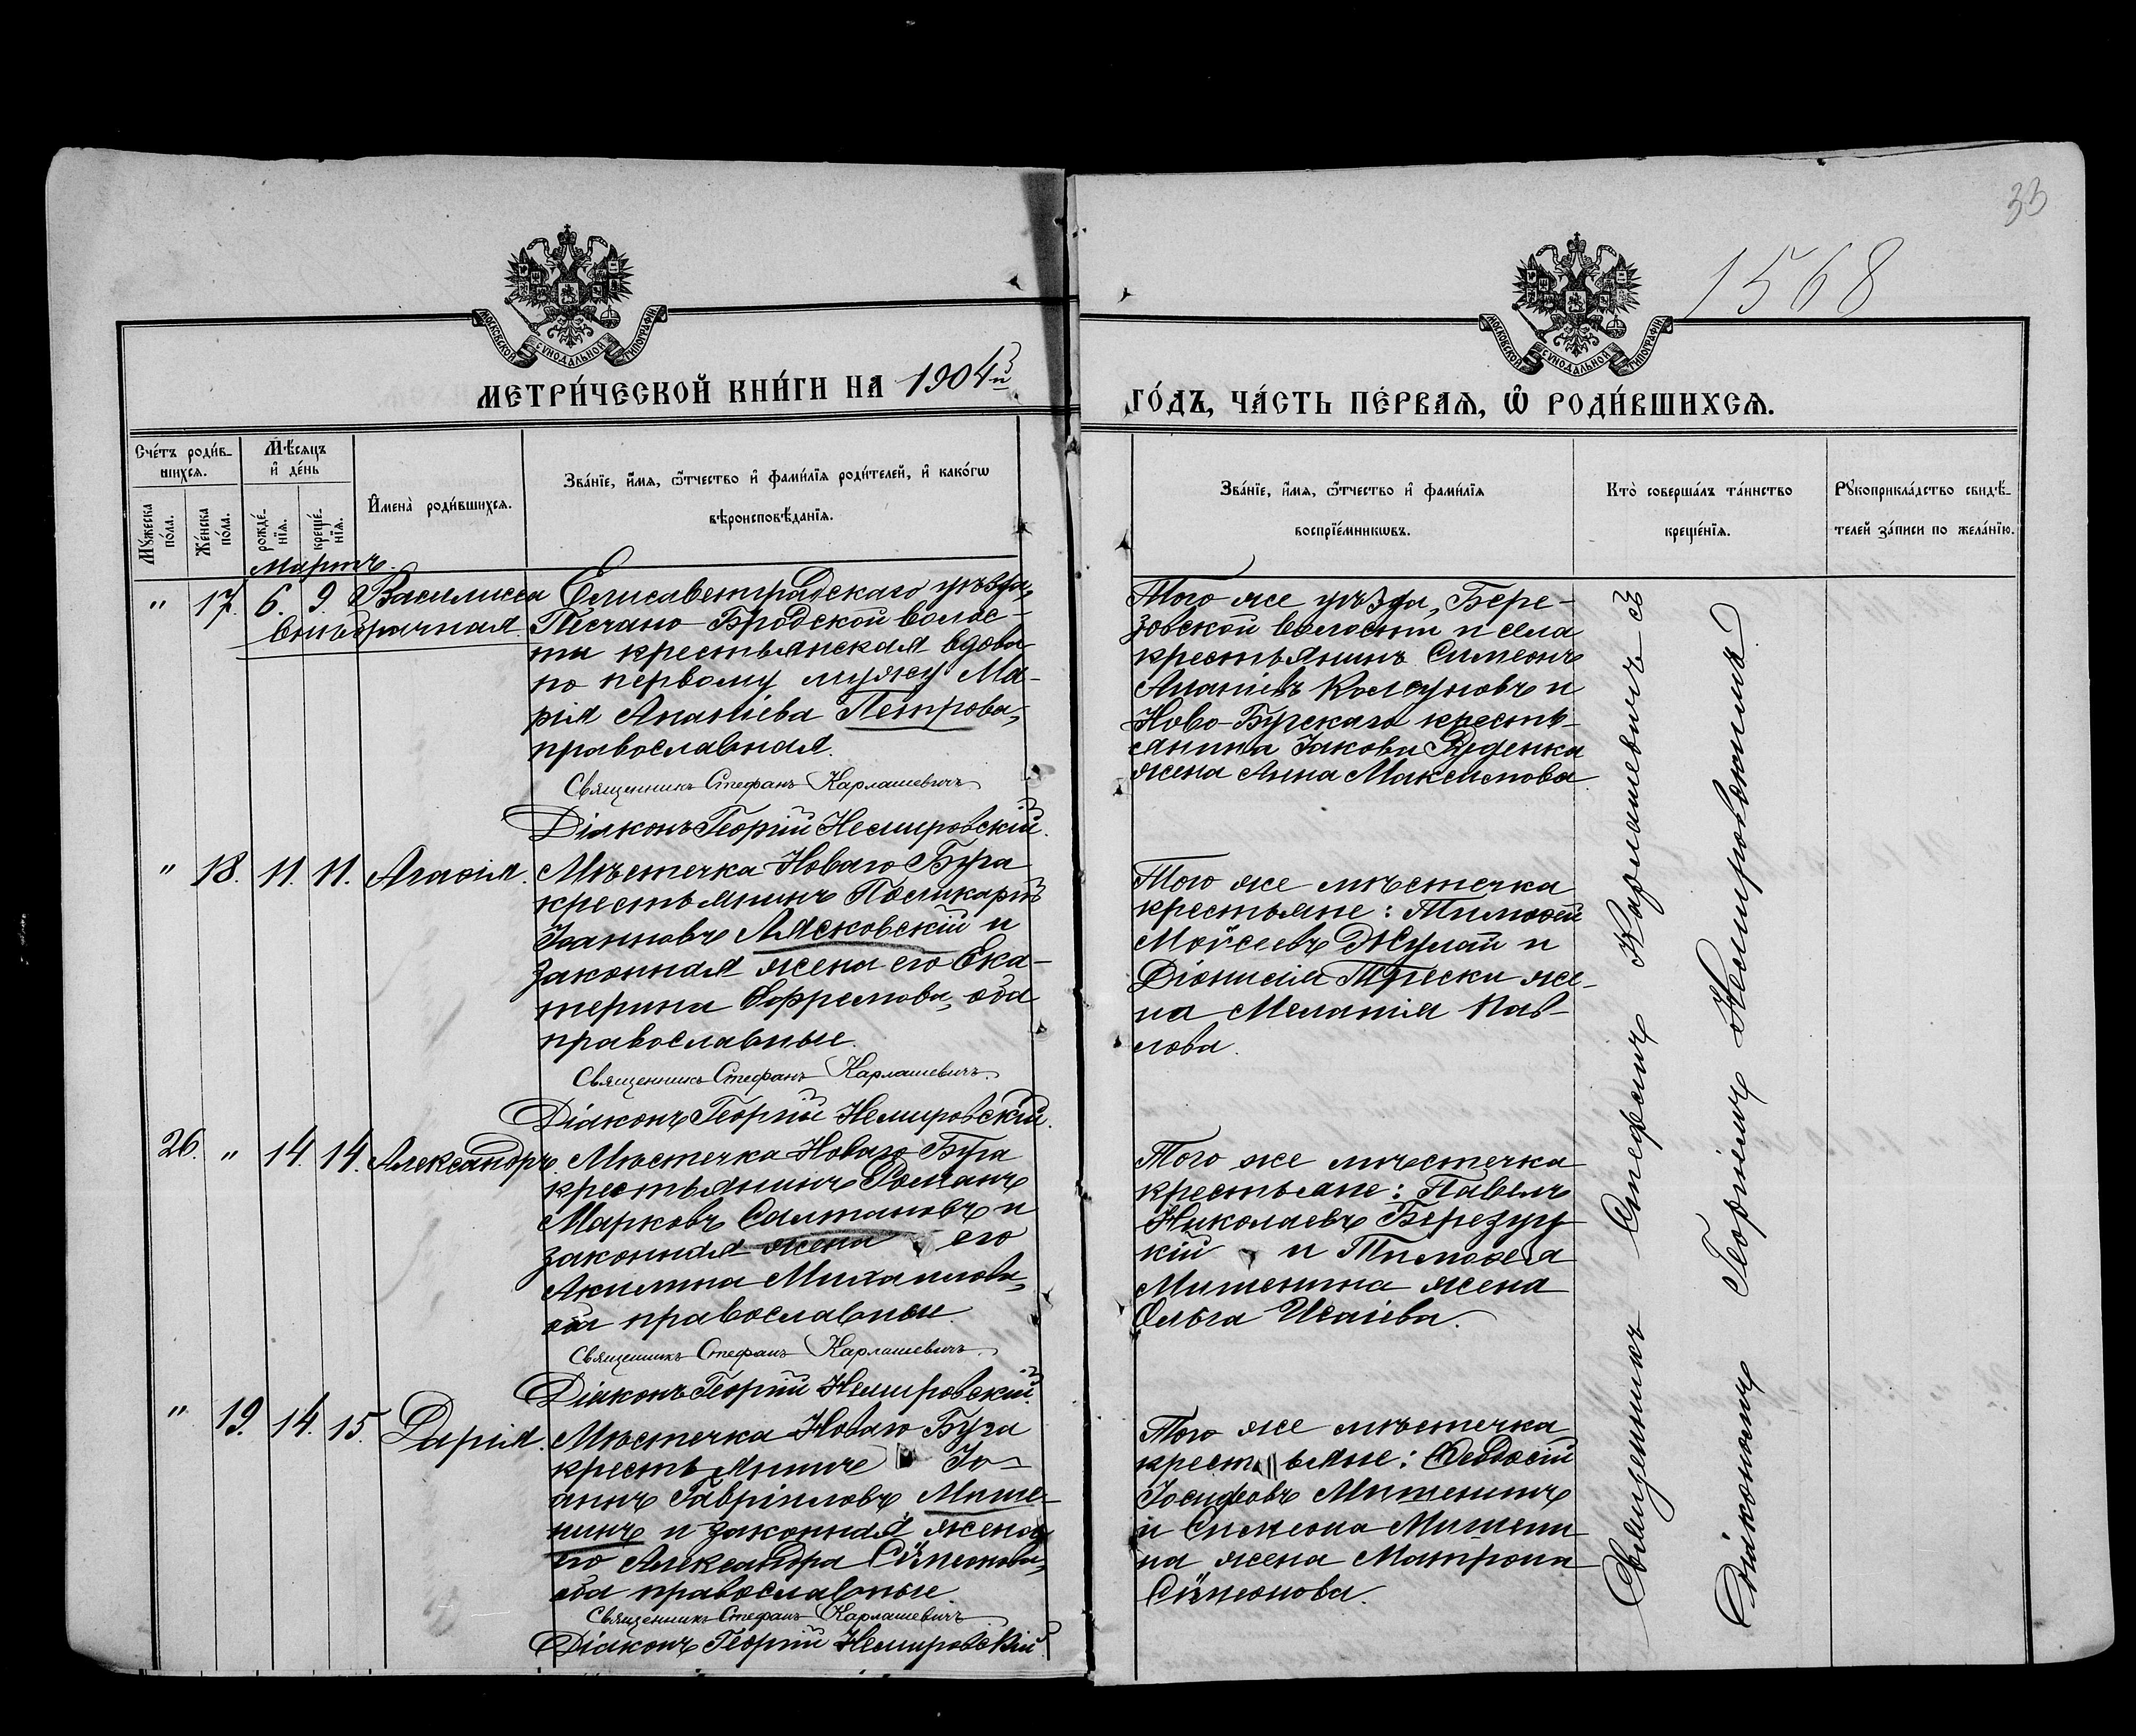 33
1568
МОСКОВСКОЙ СУНОДАЛЬНОЙ ТИПОГРАФІИ
МОСКОВСКОЙ СУНОДАЛЬНОЙ ТИПОГРАФІИ
МЕТРИ́ЧЕСКОЙ КНИ́ГИ НА 1904й
ГО́ДЪ, ЧА́СТЬ ПЕ́РВАѦ, Ѡ РОДИ́ВШИХСѦ.
Счётъ роди́в-
шихся.
Мѣ́сяцъ
и де́нь
Му́жеска по́ла.
Же́нска по́ла.
рожде́-
нїя.
креще́-
нїя.
Имена̀ роди́вшихся.
Зва́нїе, и́мя, ѻ҆́тчество и фами́лїя роди́телей, и како́гѡ
вѣроисповѣ́данїя.
Зва́нїе, и́мя, ѻ҆́тчество и фами́лїя
воспрїе́мникѡвъ.
Кто̀ соверша́лъ та́инство
креще́нїя.
Рукоприкла́дство свидѣ́-
телей за́писи по жела́нїю.
Мартъ.
" 17. 6. 9. Василисса
внѣбрачная
Елисаветградскаго уѣзда,
Песчано-Бродской волос-
ти крестьянская вдова
по первому мужу Ма-
рія Ананіева Петрова,
православная.
Священникъ Стефанъ Карлашевичъ
Діяконъ Георгій Немировскій.
Того же уѣзда, Бере-
зовской волости и села
крестьянинъ Симеонъ
Ананіевъ Колгуновъ и
Ново-Бугскаго кресть-
янина Іакова Руденка
жена Анна Максимова.
" 18. 11. 11. Агафія.
Мѣстечка Новаго Буга
крестьянинъ Поликарпъ
Іоанновъ Лясковскій и
законная жена его Ека-
терина Ефремова, оба
православные.
Священникъ Стефанъ Карлашевичъ.
Діяконъ Георгій Немировскій.
Того же мѣстечка
крестьяне: Тимоѳей
Моѵсеевъ Жулай и
Діонисія Трески же-
на Меланія Пав-
лова.
26. " 14. 14. Александръ.
Мѣстечка Новаго Буга
крестьянинъ Романъ
Марковъ Салтановъ и
законная жена его
Акилина Михаилова,
оба православные.
Священникъ Стефанъ Карлашевичъ.
Діяконъ Георгій Немировскій.
Того же мѣстечка
крестьяне: Павелъ
Николаевъ Березуц-
кій и Тимоѳея
Митенина жена
Ольга Исаіева.
" 19. 14. 15. Дарія.
Мѣстечка Новаго Буга
крестьянинъ Іо-
аннъ Гавріиловъ Мите-
нинъ и законная жена
его Александра Сѵмеонова,
оба православные.
Священникъ Стефанъ Карлашевичъ
Діяконъ Георгій Немировскій.
Того же мѣстечка
крестьяне: Ѳеодосій
Іосифовъ Митенинъ
и Симеона Митени-
на жена Матрона
Сѵмеонова.
Священникъ Стефанъ Карлашевичъ съ
Діякономъ Георгіемъ Немировскимъ